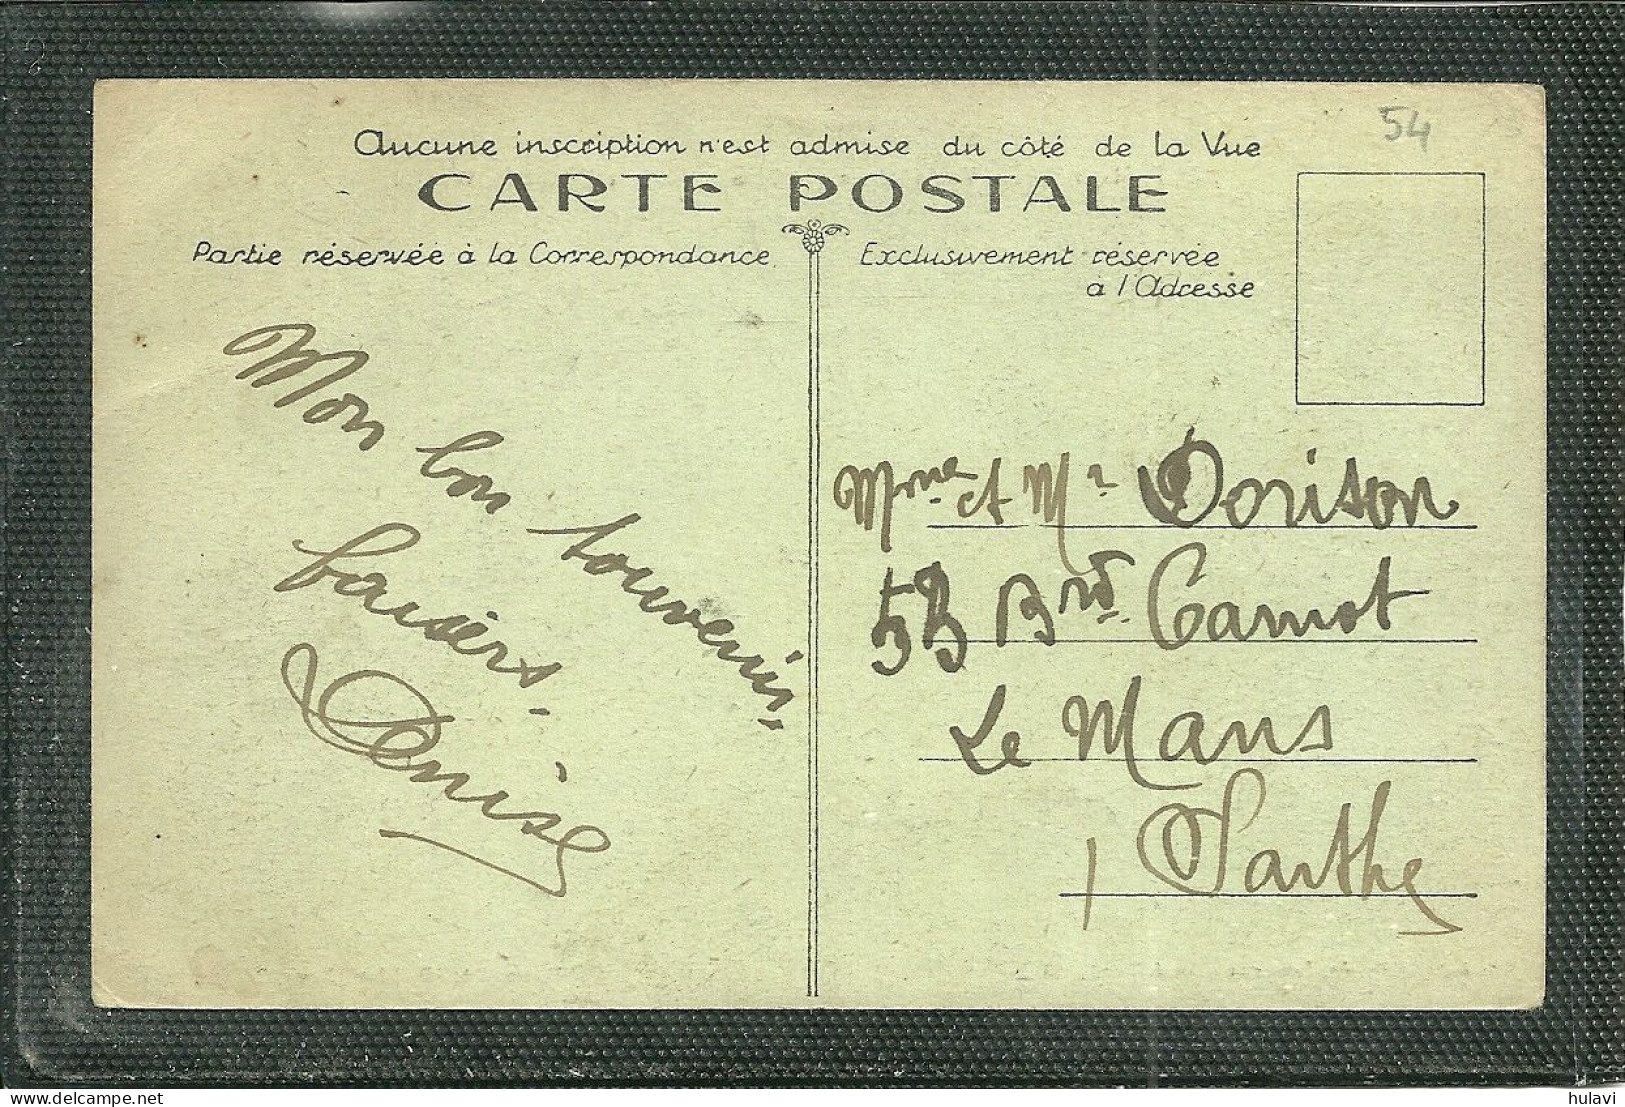 54
Aucune inscription n'est admise du côté de la Vue
CARTE POSTALE
Partie réservée à la Correspondance
Exclusivement réservée
à l'Adresse
Mon bon souvenir,
baisers.
Denise
Mme et Mr Dorison
53 Brd. Carnot
Le Mans
Sarthe
hulavi